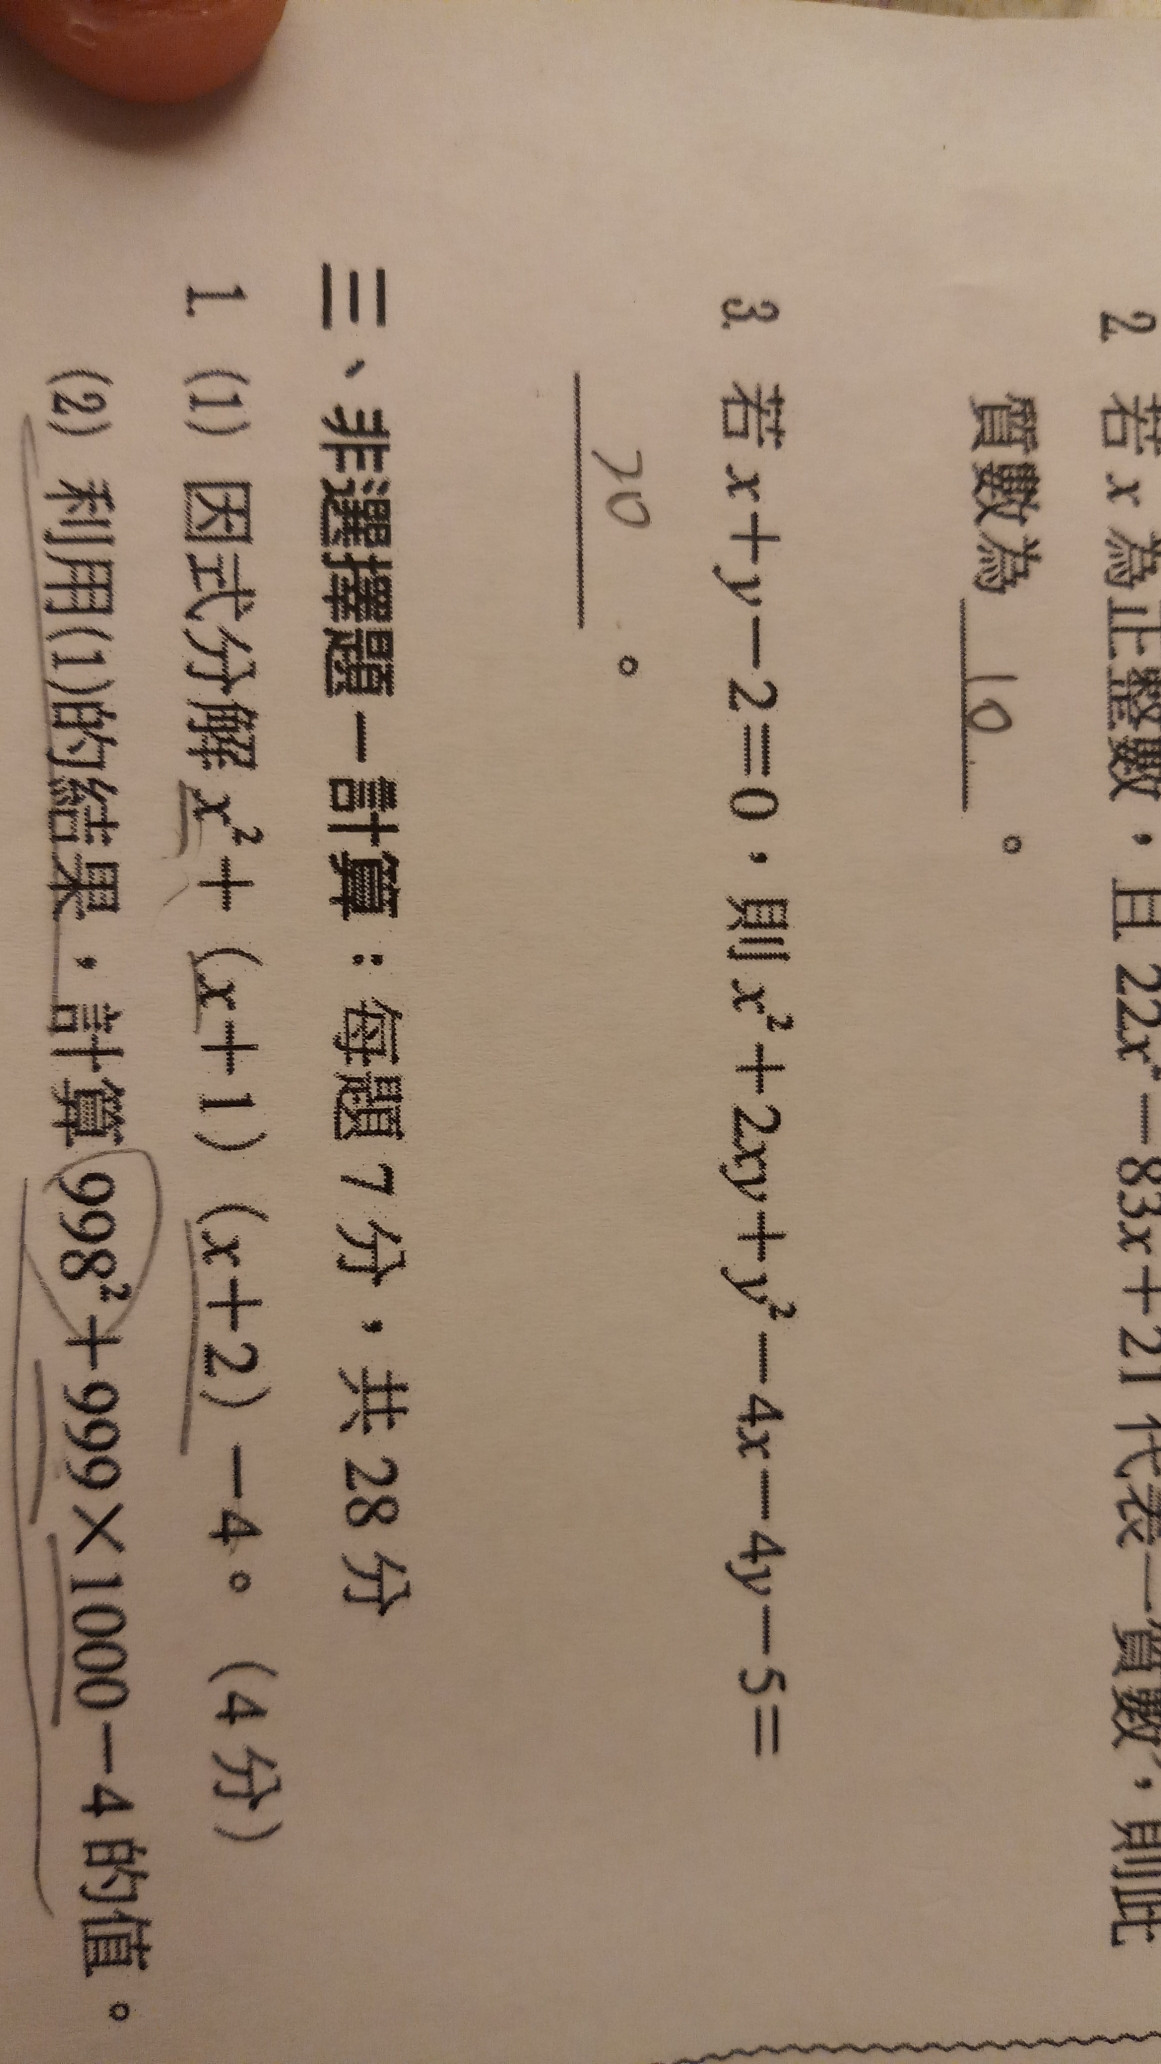 2. 若 x 為正整數,且 22x²-83x+21 代表一質數,則此
質數為 10 。
3. 若 x+y-2=0,則 x²+2xy+y²-4x-4y-5=
。
三、非選擇題-計算:每題 7 分,共 28 分
1. (1) 因式分解 x²+(x+1)(x+2)-4。(4 分)
(2) 利用(1)的結果,計算 998²+999×1000-4 的值。